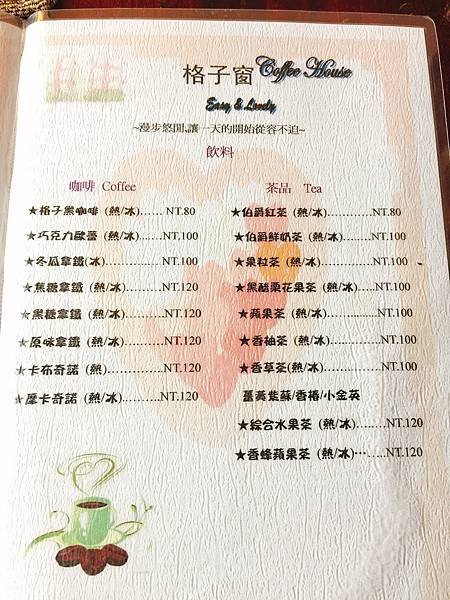 格子窗 Coffee House
Easy & Lovely
~漫步悠閒,讓一天的開始從容不迫~
飲料
咖啡 Coffee
★格子黑咖啡 (熱/冰)…… NT.80
★巧克力歐蕾 (熱/冰)…………NT.100
★冬瓜拿鐵(冰)…………NT.100
★焦糖拿鐵 (熱/冰)…………NT.120
★黑糖拿鐵 (熱/冰)…………NT.120
★原味拿鐵 (熱/冰)…………NT.120
★卡布奇諾 (熱)…………NT.120
★摩卡奇諾 (熱/冰)…………NT.120
茶品 Tea
★伯爵紅茶 (熱/冰)…………NT.80
★伯爵鮮奶茶 (熱/冰)………NT.100
★果粒茶 (熱/冰)…………NT.100
★黑醋栗花果茶 (熱/冰)……NT.100
★蘋果茶 (熱/冰)…………NT.100
★香柚茶 (熱/冰)…………NT.100
★香草茶(熱/冰)…………NT.100
薑黃紫蘇/香椿/小金英
★綜合水果茶 (熱/冰)………NT.120
★香蜂蘋果茶 (熱/冰)…….NT.120